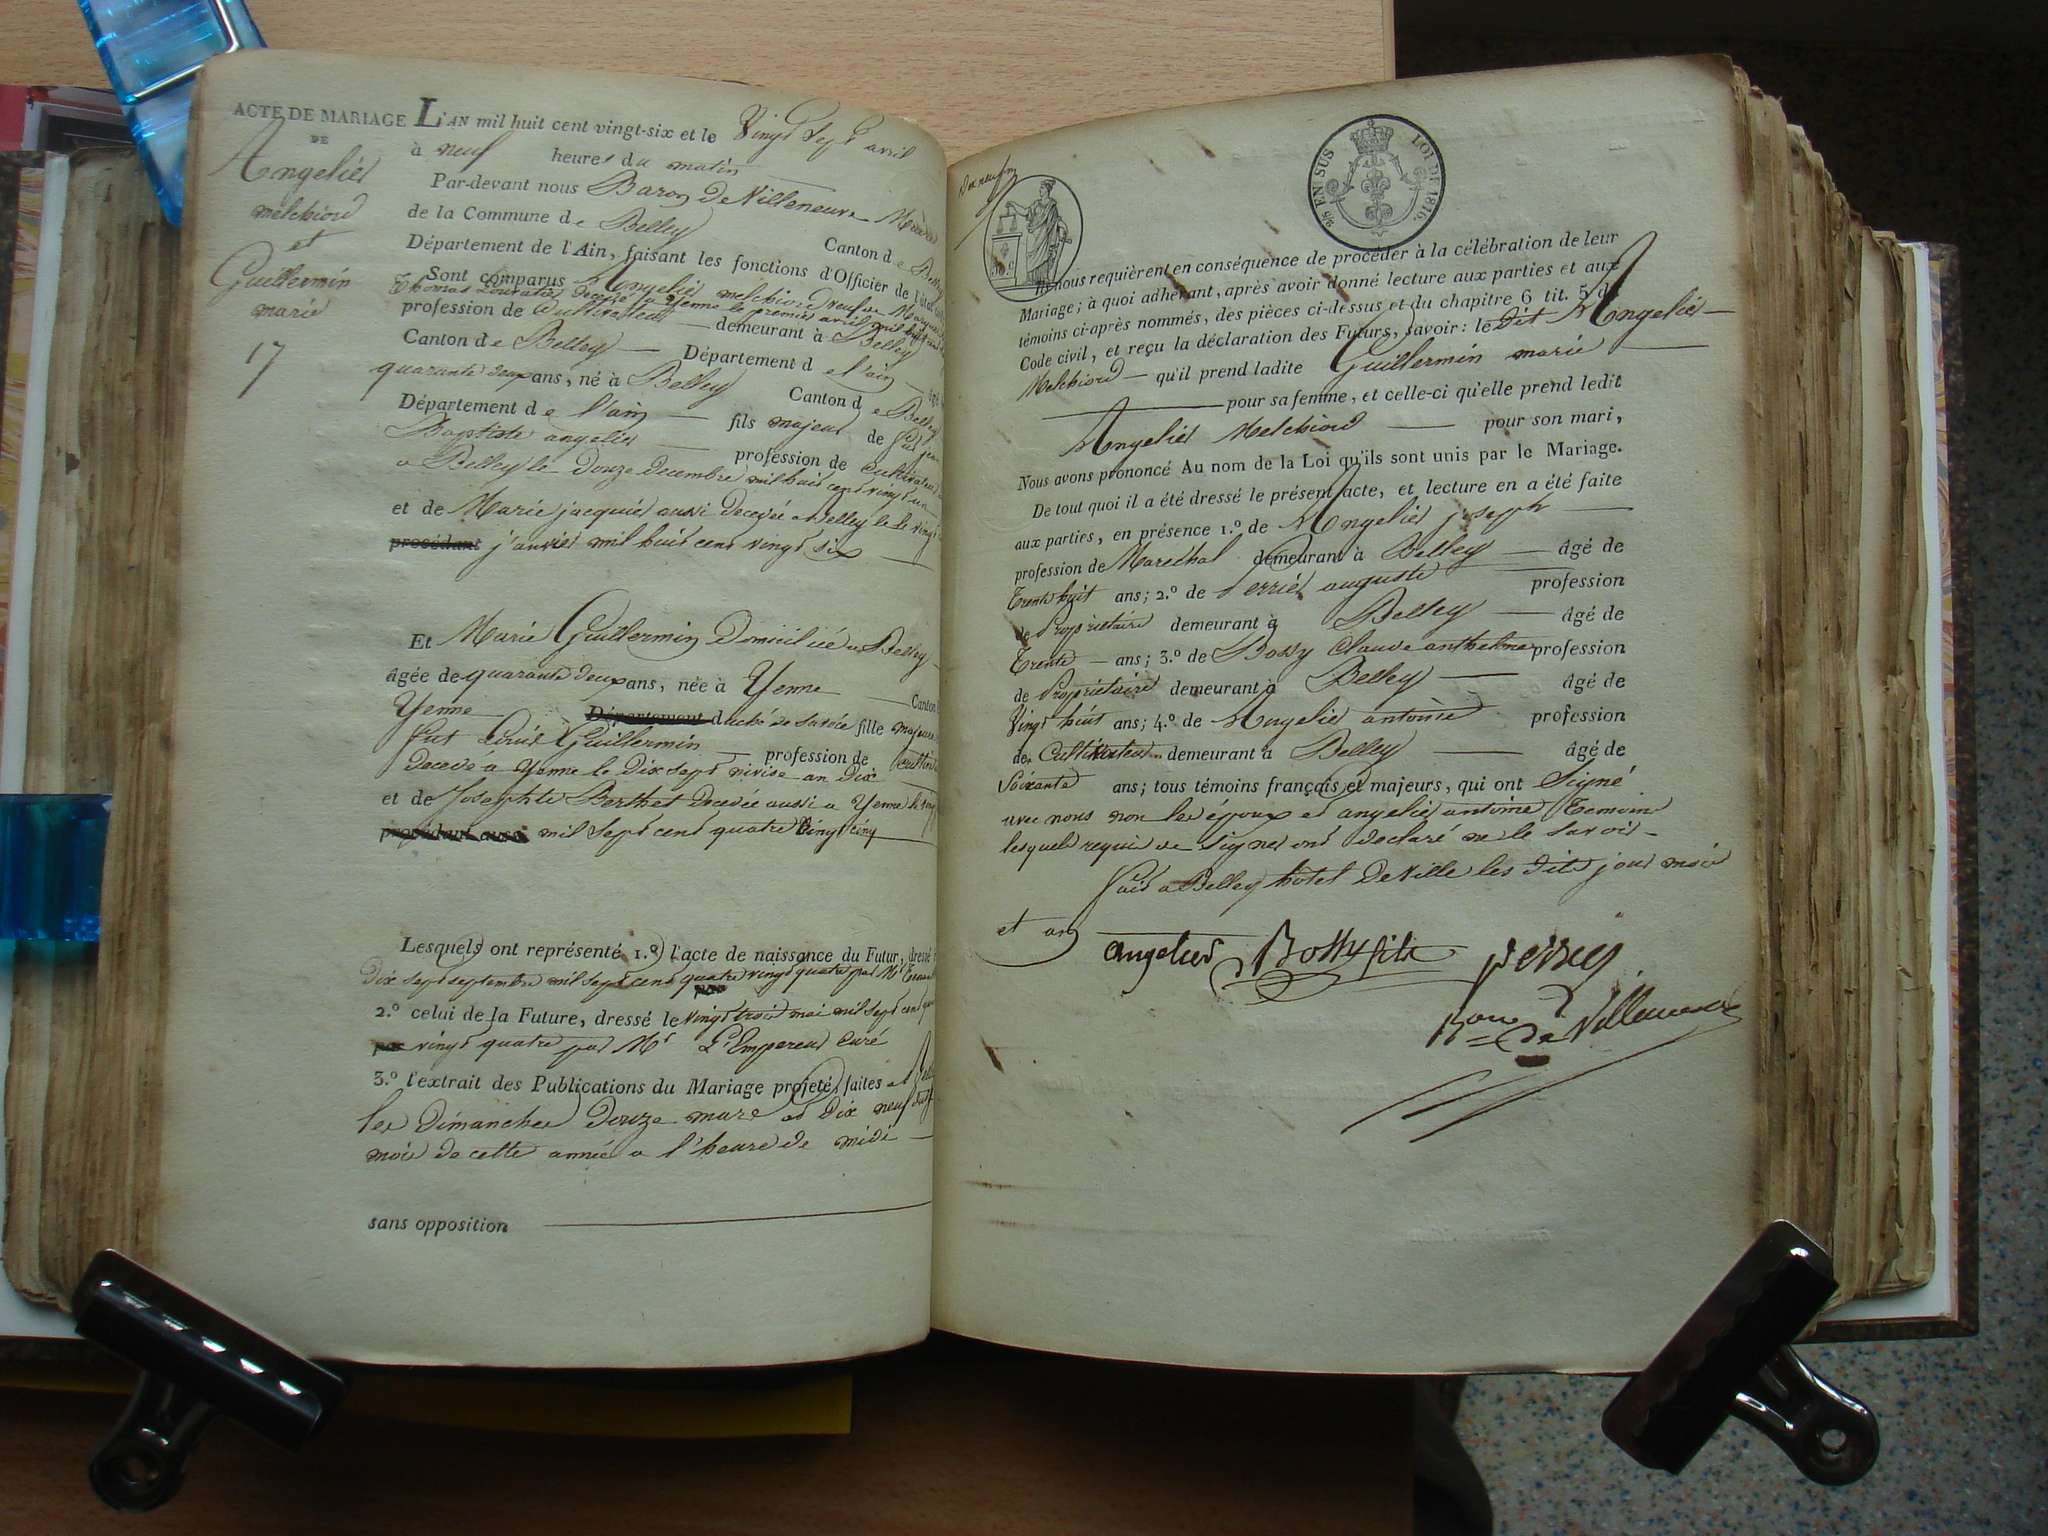 ACTE DE MARIAGE
DE
Angelier
melchiord
et
Guillermin
marie
17
L'AN mil huit cent vingt-six et le Vingt Sept avril
à neuf heures du matin
Par-devant nous Baron De Villeneuve
de la Commune de Belley Canton de
Département de l'Ain, faisant les fonctions d'Officier de
Sont comparus Angelier melchiord veuf de
Yenne le premier avril mil huit
profession de Cultivateur demeurant à Belley
Canton de Belley Département de l'ain
quarante deux ans, né à Belley Canton de Belley
Département de l'ain fils majeur de
Baptiste angelier profession de cultivateur
a Belley le Douze Decembre mil huit cent vingt un
et de Marie jacquier aussi decedée a Belley le vingt
procédant janvier mil huit cent vingt six
Et Marie Guillermin Domiciliée a Belley
âgée de quarante deux ans, née à Yenne Canton
Yenne Département duché de savoie fille majeure
fut Louis Guillermin profession de
Decede a Yenne le Dix sept nivise an Dix
et de Josephte Berthet Decedée aussi a Yenne le
procédant avec mil sept cent quatre vingt cinq
Lesquels ont représenté 1.º l'acte de naissance du Futur, dressé
Dix sept septembre mil sept cent quatre vingt quatre par Mr
2.º celui de la Future, dressé le vingt trois mai mil sept cent
par vingt quatre par Mr L'Empereur Curé
3.º l'extrait des Publications du Mariage projeté, faites a
les Dimanches Douze mars et Dix neuf
mois de cette année a l'heure de midi
sans opposition
25 EN SUS
LOI DE 1816.
nous requièrent en conséquence de procéder à la célébration de leur
Mariage; à quoi adhérant, après avoir donné lecture aux parties et aux
témoins ci-après nommés, des pièces ci-dessus et du chapitre 6 tit. 5 du
Code civil, et reçu la déclaration des Futurs, savoir: le Dit Angelier
Melchiord qu'il prend ladite Guillermin marie
pour sa femme, et celle-ci qu'elle prend ledit
Angelier Melchiord pour son mari,
Nous avons prononcé Au nom de la Loi qu'ils sont unis par le Mariage.
De tout quoi il a été dressé le présent acte, et lecture en a été faite
aux parties, en présence 1.º de Angelier joseph
profession de Marechal demeurant à Belley âgé de
Trente huit ans; 2.º de Perrier auguste profession
de Proprietaire demeurant à Belley âgé de
Trente ans; 3.º de Bossy Claude anthelme profession
de Proprietaire demeurant à Belley âgé de
Vingt huit ans; 4.º de Angelier antoine profession
de Cultivateur demeurant à Belley âgé de
Soixante ans; tous témoins français et majeurs, qui ont Signé
avec nous non les époux et angelier antoine Temoin
lesquels requis de signer ont declaré ne le savoir
fait a Belley hôtel De Ville les dits jour mois
et an
angelier Bossy fils perrier
Bon De Villeneuve